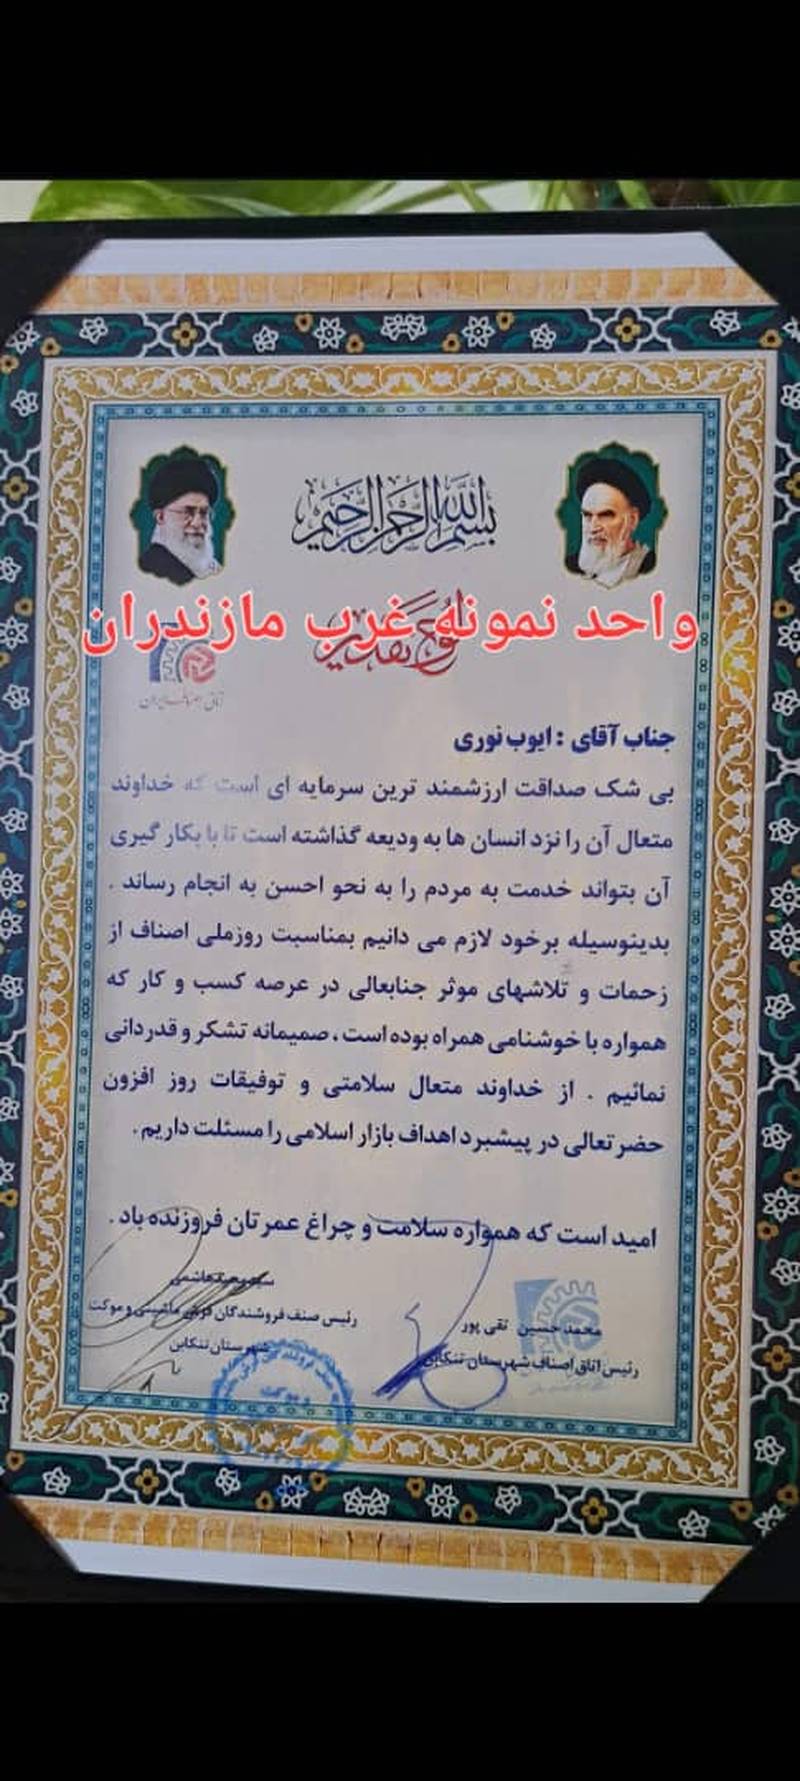 بسم الله الرحمن الرحیم
واحد نمونه غرب مازندران
لوح تقدیر
اتاق اصناف ایران
جناب آقای : ایوب نوری
بی شک صداقت ارزشمند ترین سرمایه ای است که خداوند
متعال آن را نزد انسان ها به ودیعه گذاشته است تا با بکار گیری
آن بتواند خدمت به مردم را به نحو احسن به انجام رساند .
بدینوسیله برخود لازم می دانیم بمناسبت روزملی اصناف از
زحمات و تلاشهای موثر جنابعالی در عرصه کسب و کار که
همواره با خوشنامی همراه بوده است ، صمیمانه تشکر و قدردانی
نمائیم . از خداوند متعال سلامتی و توفیقات روز افزون
حضرتعالی در پیشبرد اهداف بازار اسلامی را مسئلت داریم.
امید است که همواره سلامت و چراغ عمرتان فروزنده باد .
محمد حسین تقی پور
رئیس اتاق اصناف شهرستان تنکابن
هاشمی
رئیس صنف فروشندگان فرش ماشینی و موکت
شهرستان تنکابن